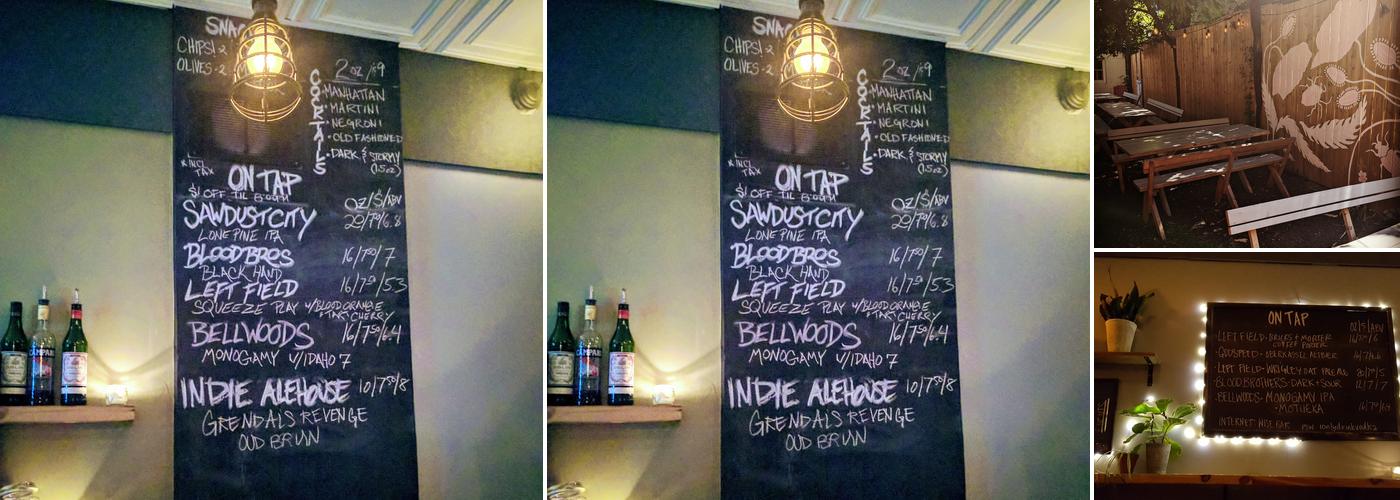 SNA
CHIPS! -2
OLIVES -2
COCKTAILS
2oz /$9
• MANHATTAN
• MARTINI
• NEGRONI
• OLD FASHIONED
• DARK & STORMY
(1.5oz)
* INCL
TAX
ON TAP
$1 OFF TIL
OZ/$/ABV
SAWDUST CITY
LONE PINE IPA
BLOOD BROS
16/7⁵⁰/7
BLACK HAND
LEFT FIELD
16/7⁵⁰/5.3
SQUEEZE PLAY W/BLOOD ORANGE
+ TART CHERRY
BELLWOODS
16/7⁵⁰/6.4
MONOGAMY W/IDAHO 7
INDIE ALEHOUSE
10/7⁵⁰/8
GRENDALS REVENGE
OUD BRUIN
CAMPARI
SNA
CHIPS! -2
OLIVES -2
COCKTAILS
2oz /$9
• MANHATTAN
• MARTINI
• NEGRONI
• OLD FASHIONED
• DARK & STORMY
(1.5oz)
* INCL
TAX
ON TAP
$1 OFF TIL
OZ/$/ABV
SAWDUST CITY
LONE PINE IPA
BLOOD BROS
16/7⁵⁰/7
BLACK HAND
LEFT FIELD
16/7⁵⁰/5.3
SQUEEZE PLAY W/BLOOD ORANGE
+ TART CHERRY
BELLWOODS
16/7⁵⁰/6.4
MONOGAMY W/IDAHO 7
INDIE ALEHOUSE
10/7⁵⁰/8
GRENDALS REVENGE
OUD BRUIN
CAMPARI
ON TAP
OZ/$/ABV
• LEFT FIELD - BRICKS & MORTER
COFFEE PORTER
• GODSPEED -
• LEFT FIELD - WRIGLEY OAT PALE ALE
• BLOOD BROTHERS - DARK + SOUR
• BELLWOODS - MONOGAMY IPA
- MOTUEKA
INTERNET